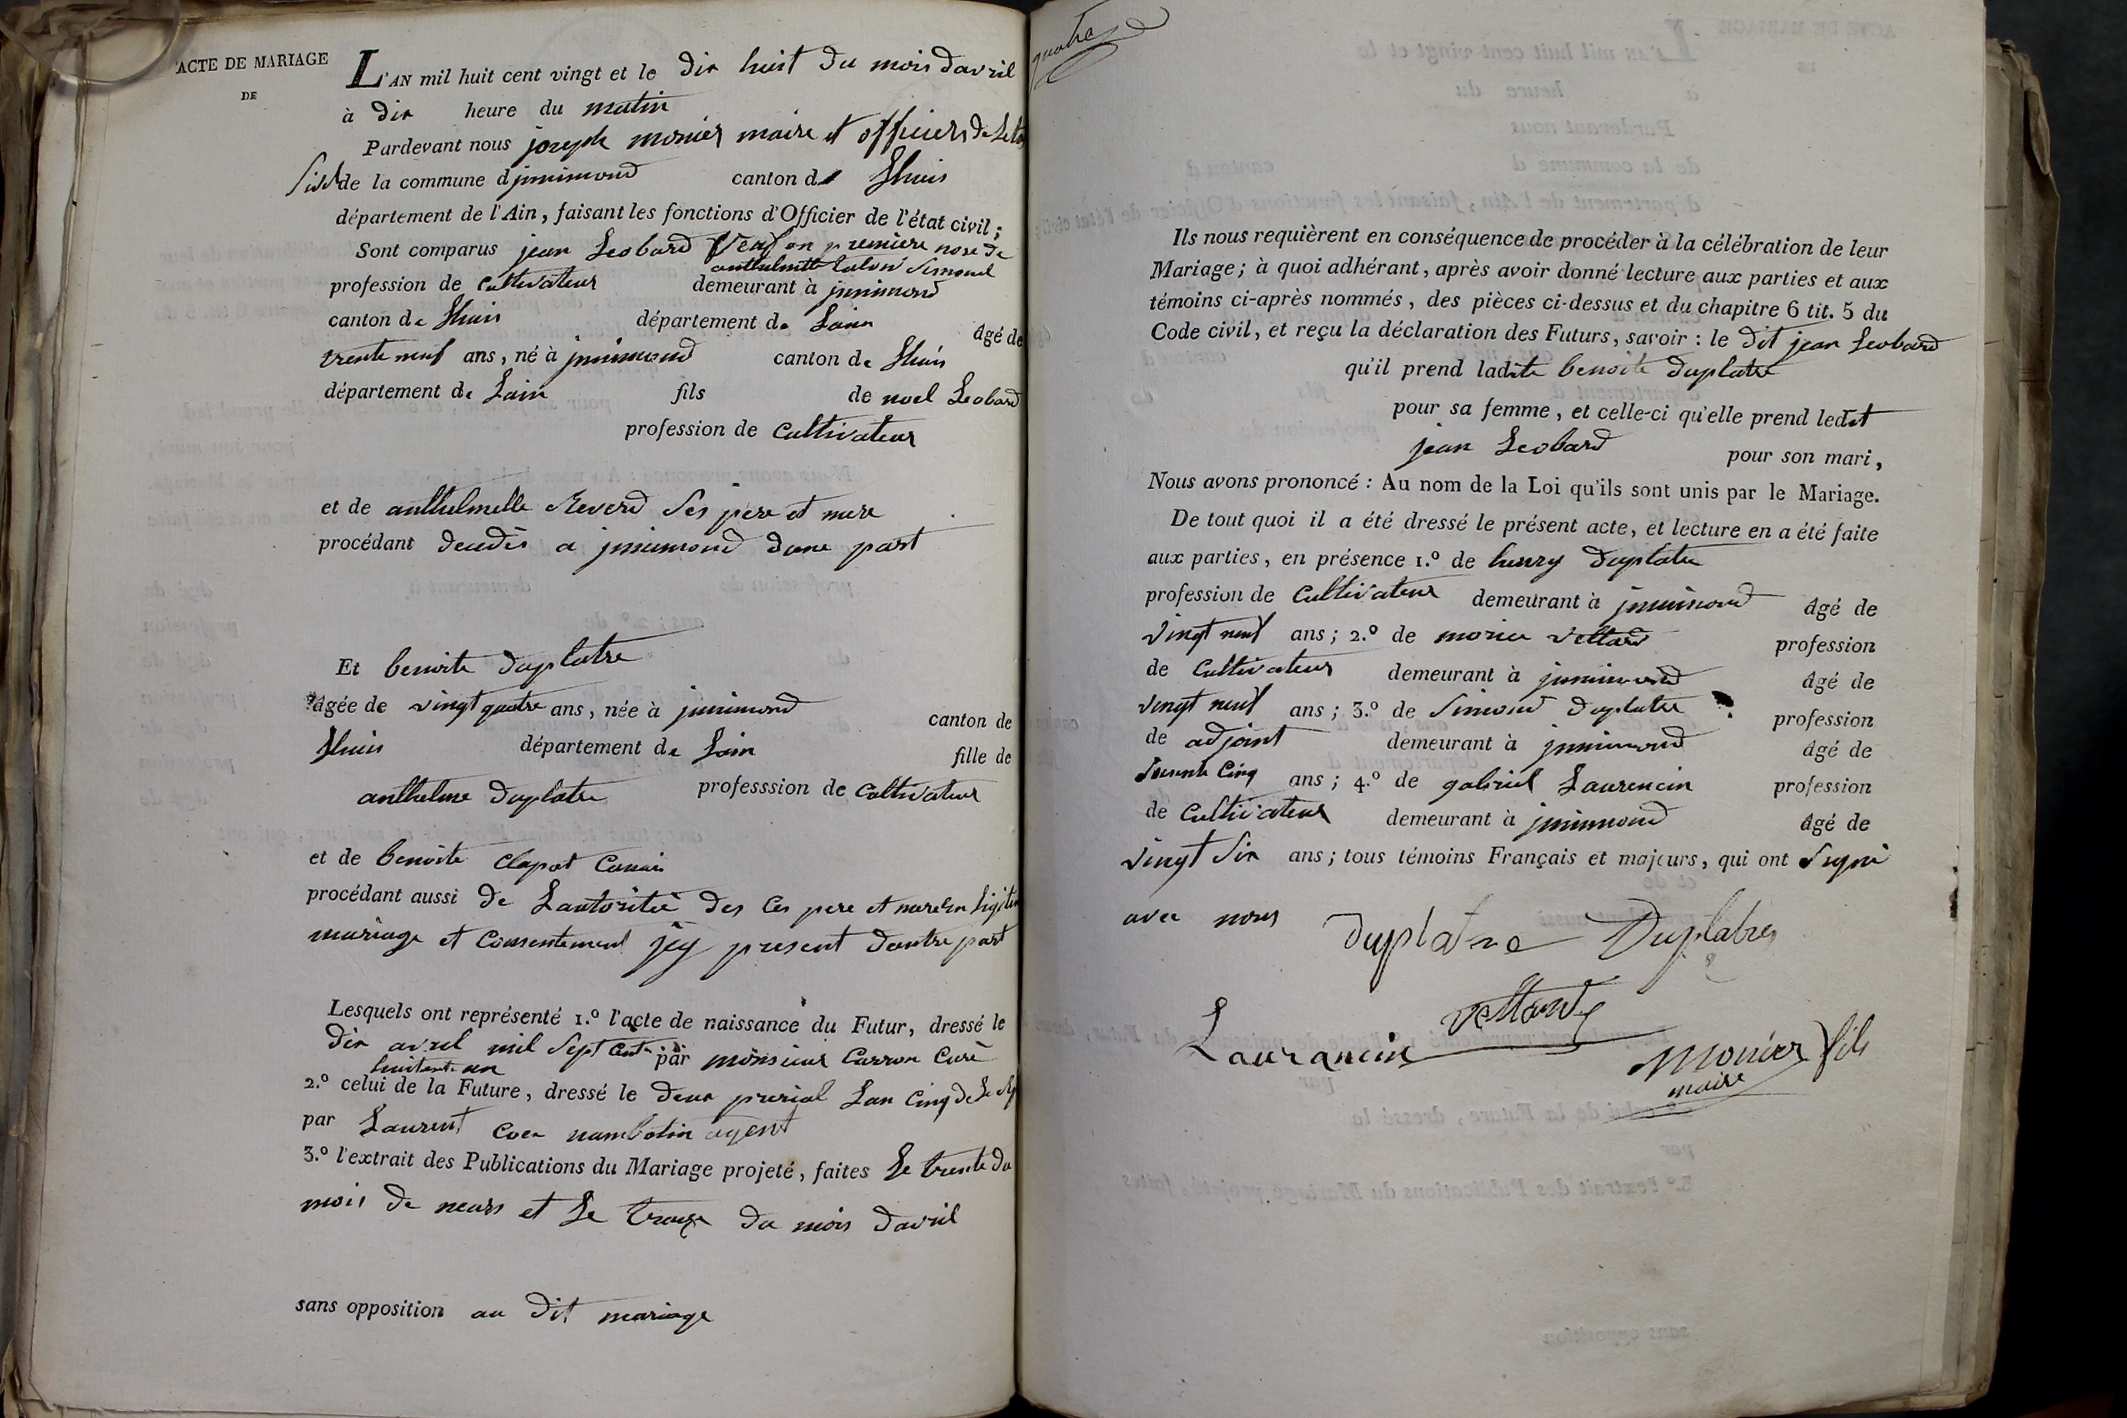 ACTE DE MARIAGE
DE
L'AN mil huit cent vingt et le dix huit du mois davril
à dix heure du matin
Pardevant nous joseph monier maire et officiers de Leta
Sivil de la commune d jnnimond canton de Lhuis
département de l'Ain, faisant les fonctions d'Officier de l'état civil;
Sont comparus jean Leobard Veuf en premiere nose de
anthelmette Simond
profession de cultivateur demeurant à jnnimond
canton de Lhuis département de Lain âgé de
trente neuf ans, né à jnnimond canton de Lhuis
département de Lain fils de noel Leobard
profession de cultivateur
et de anthelmette Reverd Ses pere et mere
procédant decedès a jnnimond dune part
Et benoite duplatre
âgée de vingt quatre ans, née à jnnimond canton de
Lhuis département de Lain fille de
anthelme duplatre professsion de cultivateur
et de benoite clapot
procédant aussi de Lautoritée des Ces pere et mere en ligitim
mariage et consentement jcy present dautre part
Lesquels ont représenté 1.º l'acte de naissance du Futur, dressé le
dix avril mil Sept Cent par monsieur Carron Curé
huitante un
2.º celui de la Future, dressé le deux prerial Lan Cinq de Le Rep
par Laurent agent
3.º l'extrait des Publications du Mariage projeté, faites Le trente du
mois de mars et Le du mois davril
sans opposition au dit mariage
quatre
Ils nous requièrent en conséquence de procéder à la célébration de leur
Mariage; à quoi adhérant, après avoir donné lecture aux parties et aux
témoins ci-après nommés, des pièces ci-dessus et du chapitre 6 tit. 5 du
Code civil, et reçu la déclaration des Futurs, savoir: le dit jean Leobard
qu'il prend ladite benoite duplatre
pour sa femme, et celle-ci qu'elle prend ledit
jean Leobard pour son mari,
Nous avons prononcé: Au nom de la Loi qu'ils sont unis par le Mariage.
De tout quoi il a été dressé le présent acte, et lecture en a été faite
aux parties, en présence 1.º de henry duplatre
profession de cultivateur demeurant à jnnimond âgé de
vingt neuf ans; 2.º de morice vettard profession
de cultivateur demeurant à jnnimond âgé de
vingt neuf ans; 3.º de Simond duplatre profession
de adjoint demeurant à jnnimond âgé de
cinq ans; 4.º de gabriel Laurencin profession
de cultivateur demeurant à jnnimond âgé de
vingt Six ans; tous témoins Français et majeurs, qui ont Signé
avec nous duplatre Duplatre
vettard
Laurancin monier fils
maire